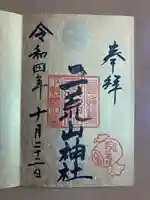 奉拝
二荒山神社
令和四年十月二十二日